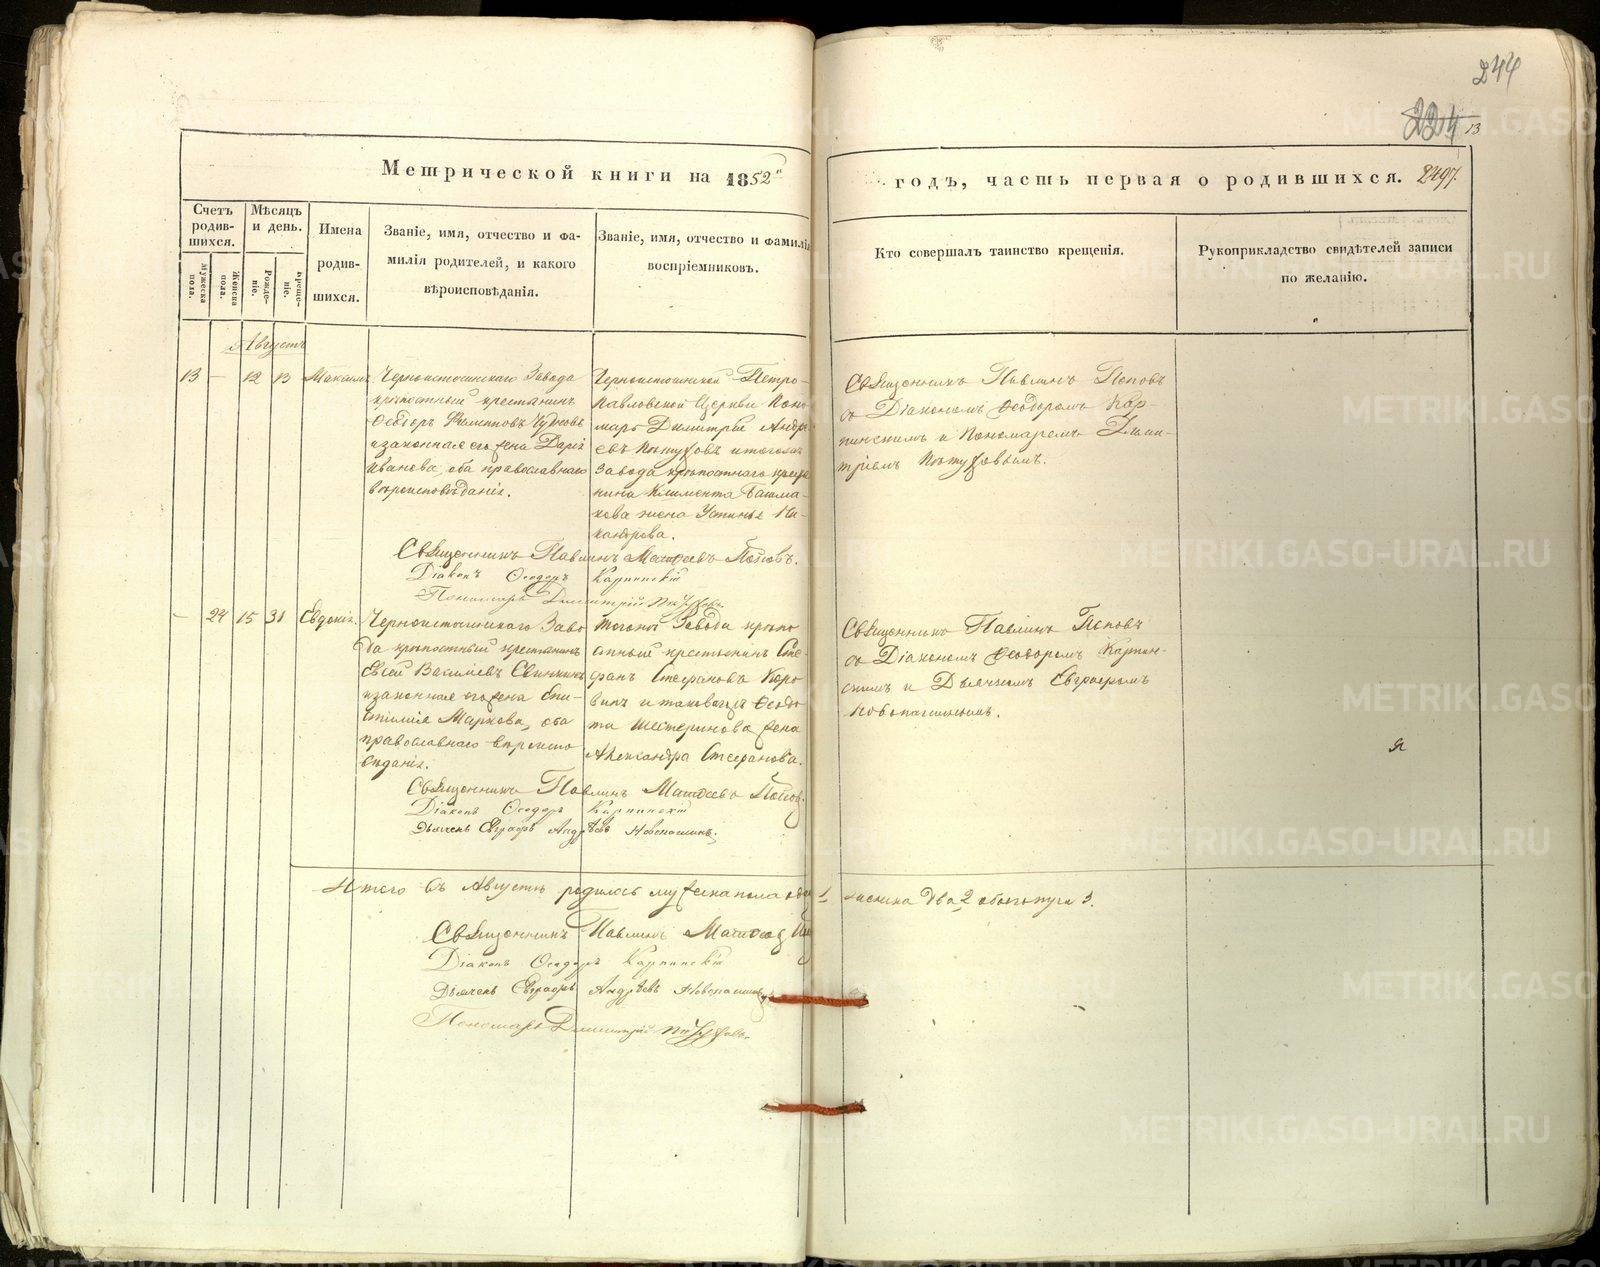 244
224
13
Метрической книги на 1852й
годъ, часть первая о родившихся. 2497.
Счетъ родившихся.
Мѣсяцъ и день.
Имена родившихся.
Званіе, имя, отчество и фамилія родителей, и какого вѣроисповѣданія.
Званіе, имя, отчество и фамилія воспріемниковъ.
Кто совершалъ таинство крещенія.
Рукоприкладство свидѣтелей записи по желанію.
Мужеска пола.
Женска пола.
Рожденіе.
Крещеніе.
Августъ
13 – 12 13 Максимъ
Черноисточинскаго Завода
крѣпостный крестьянинъ
Ѳеодоръ
и законная его жена Дарія
Иванова, оба православнаго
вѣроисповѣданія.
Черноисточинской Петро-
павловской Церкви Поно-
марь Димитрій Андре
евъ и тогожъ
Завода крѣпостнаго крестья
нина Климента Башма-
кова жена Устинья Ни-
кандрова.
Священникъ Павлинъ Поповъ
съ Діакономъ Ѳеодоромъ Кар-
пинскимъ и Пономаремъ Дими-
тріемъ
Священникъ Павлинъ Матѳеевъ Поповъ.
Діаконъ Ѳеодоръ Карпинскій
Пономарь Димитрій
– 24 15 31 Евдокія.
Черноисточинскаго Заво
да крѣпостный крестьянинъ
Евсей Васильевъ
и законная его жена Епи-
стимія Маркова, оба
православнаго вѣроиспо
вѣданія.
Тогожъ Завода крѣпо
стный крестьянинъ Сте
фанъ Стефановъ Коро
винъ и таковагожъ Ѳеодо
та Шестеринова жена
Александра Стефанова.
Священникъ Павлинъ Поповъ
съ Діакономъ Ѳеодоромъ Карпин-
скимъ и Дьячкомъ Евграфомъ
Новопашинымъ.
Священникъ Павлинъ Матѳеевъ Поповъ.
Діаконъ Ѳеодоръ Карпинскій
Дьячекъ Евграфъ Андреевъ Новопашинъ.
Итого въ Августѣ родилось мужеска пола один 1 женска два 2 обоего пола 3.
Священникъ Павлинъ Матѳеевъ
Діаконъ Ѳеодоръ Карпинскій
Дьячекъ Евграфъ Андреевъ Новопашинъ
Пономарь Димитрій
METRIKI.GASO-URAL.RU